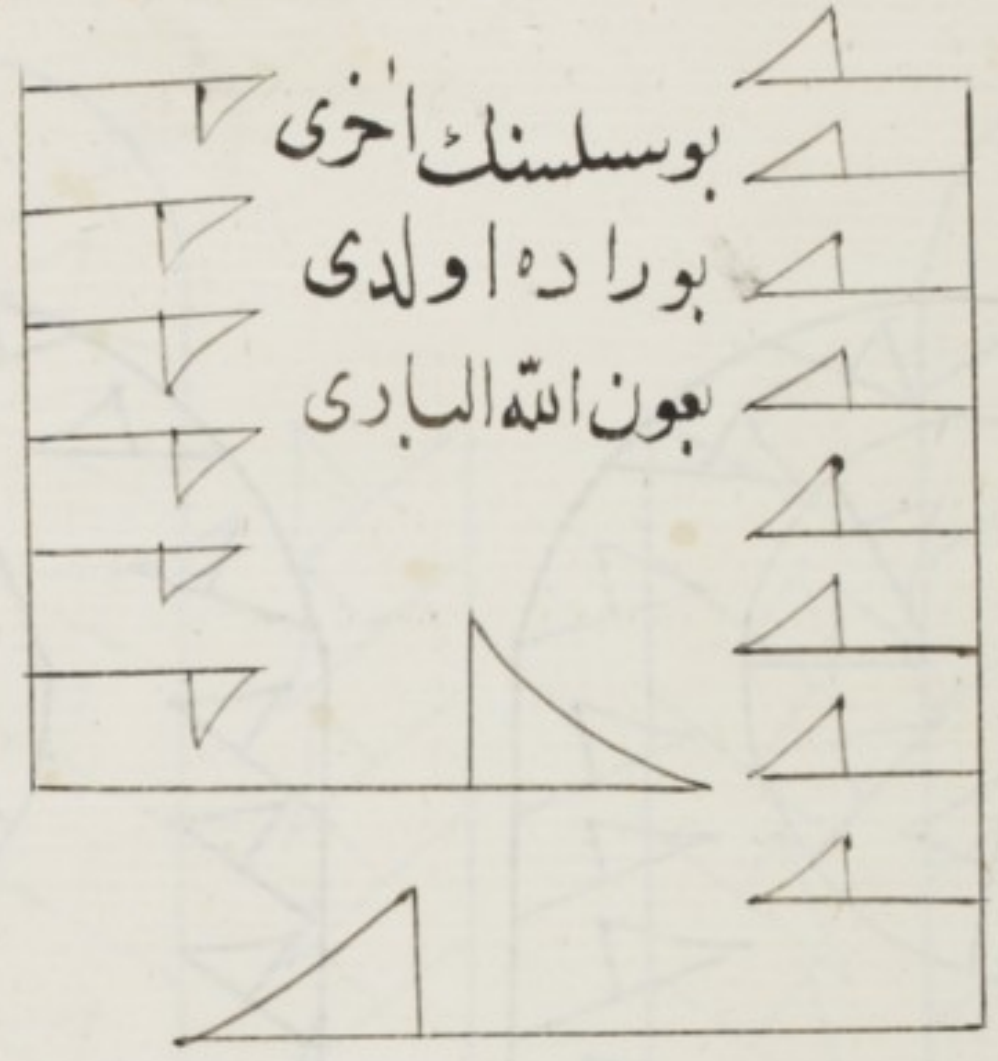 بو سلسنك اخری
بوراده اولدی
بعون الله الباری